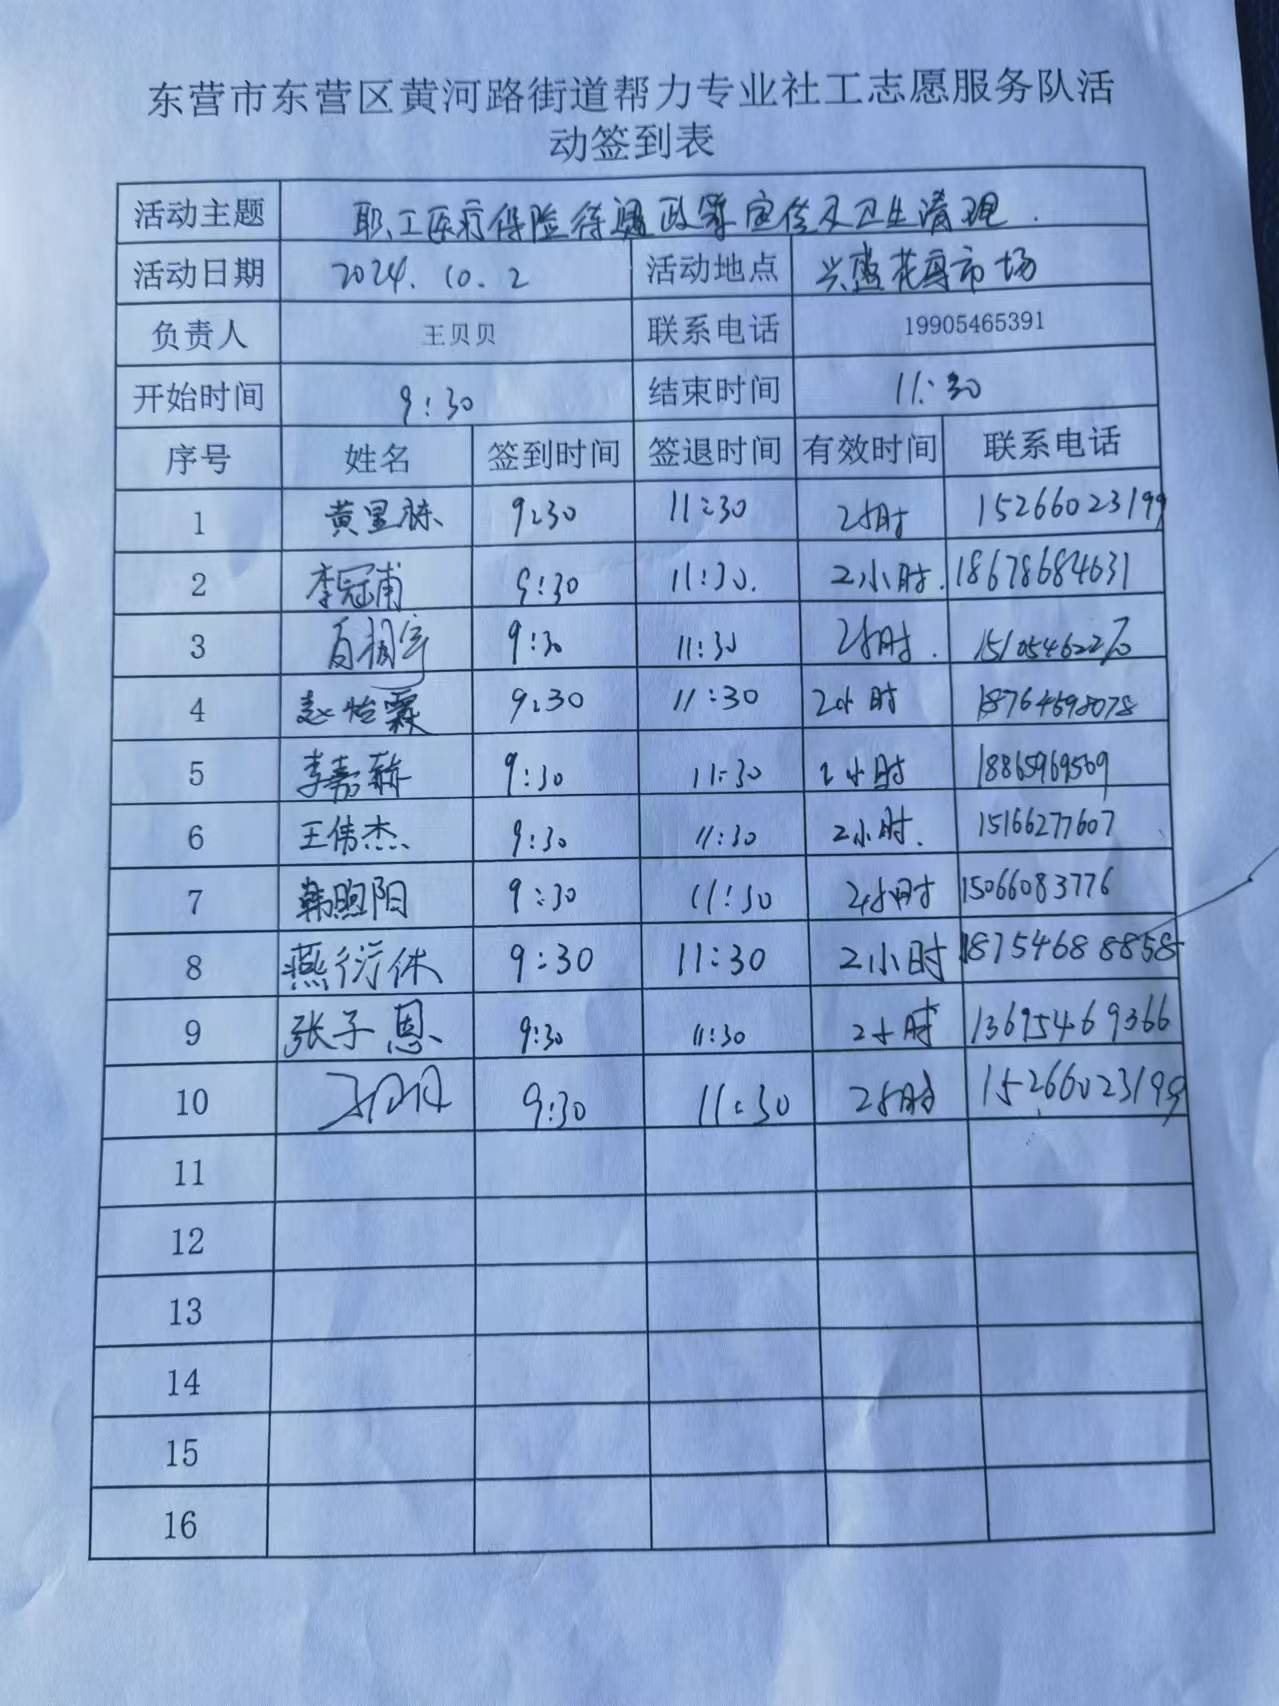 东营市东营区黄河路街道帮力专业社工志愿服务队活
动签到表
活动主题 职工医疗保险待遇政策宣传及卫生清理.
活动日期 2024.10.2 活动地点 兴盛花园市场
负责人 王贝贝 联系电话 19905465391
开始时间 9:30 结束时间 11:30
序号 姓名 签到时间 签退时间 有效时间 联系电话
1 黄 9:30 11:30 2小时 15266023199
2 李冠甫 9:30 11:30. 2小时. 18678684631
3 9:30 11:30 2小时. 15105462270
4 赵怡霖 9:30 11:30 2小时 18764598078
5 李嘉 9:30 11:30 2小时 18865969509
6 王伟杰 9:30 11:30 2小时. 15166277607
7 韩煦阳 9:30 11:30 2小时 15066083776
8 燕衍休 9:30 11:30 2小时 18754688858
9 张子恩 9:30 11:30 2小时 13695469366
10 9:30 11:30 2小时 15266023199
11
12
13
14
15
16